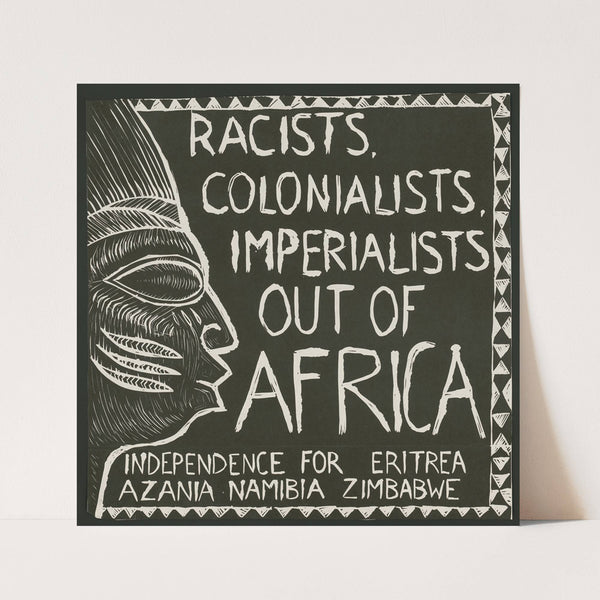 RACISTS,
COLONIALISTS,
IMPERIALISTS
OUT OF
AFRICA
INDEPENDENCE FOR ERITREA
AZANIA NAMIBIA ZIMBABWE